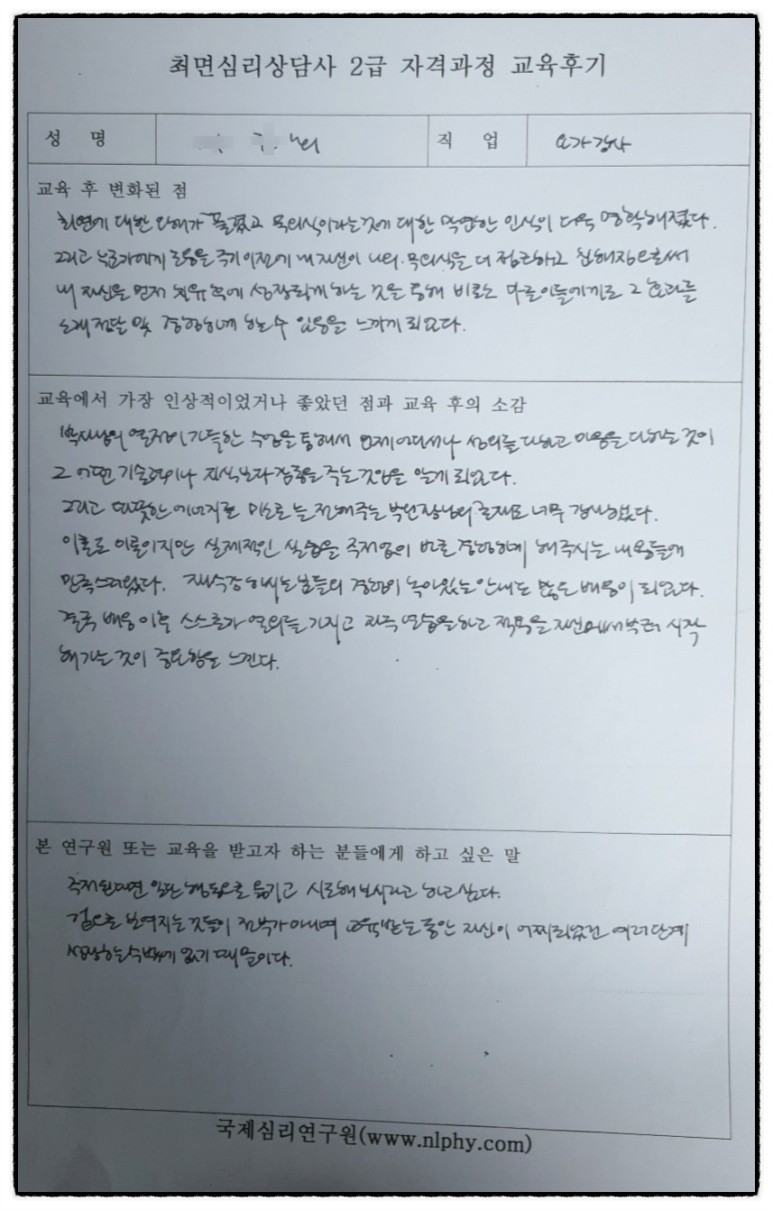 최면심리상담사 2급 자격과정 교육후기
성 명 희 직 업 요가강사
교육 후 변화된 점
최면에 대한 오해가 풀렸고 무의식이라는 것에 대한 막연한 인식이 더욱 명확해졌다.
그리고 누군가에게 도움을 주기 이전에 내 자신이 나의 무의식을 더 접근하고 친해짐으로써
내 자신을 먼저 치유 후에 성장하게 하는 것을 통해 비로소 다른이들에게도 그 효과를
전달 및 경험하게 할 수 있음을 느끼게 되었다.
교육에서 가장 인상적이었거나 좋았던 점과 교육 후의 소감
박사님의 열정이 가득한 수업을 통해서 언제 어디서나 성의를 다하고 마음을 다하는 것이
그 어떤 기술력이나 지식보다 감동을 주는 것임을 알게 되었다.
그리고 따뜻한 에너지로 미소로 늘 전해주는 부원장님의 존재도 너무 감사했다.
이론도 이론이지만 실제적인 실습을 주저없이 바로 경험하게 해주시는 내용들에
만족스러웠다. 재수강 하시는 분들의 경험이 녹아있는 안내도 많은 배움이 되었다.
결국 배움 이후 스스로가 열의를 가지고 자주 연습을 하고 접목을 자신에게부터 시작
해가는 것이 중요함을 느낀다.
본 연구원 또는 교육을 받고자 하는 분들에게 하고 싶은 말
주저된다면 일단 행동으로 옮기고 시도해보시라고 하고싶다.
겉으로 보여지는 것들이 전부가 아니며 교육받는 동안 자신이 어찌되었건 여러 단계
성장하는수밖에 없기 때문이다.
국제심리연구원(www.nlphy.com)